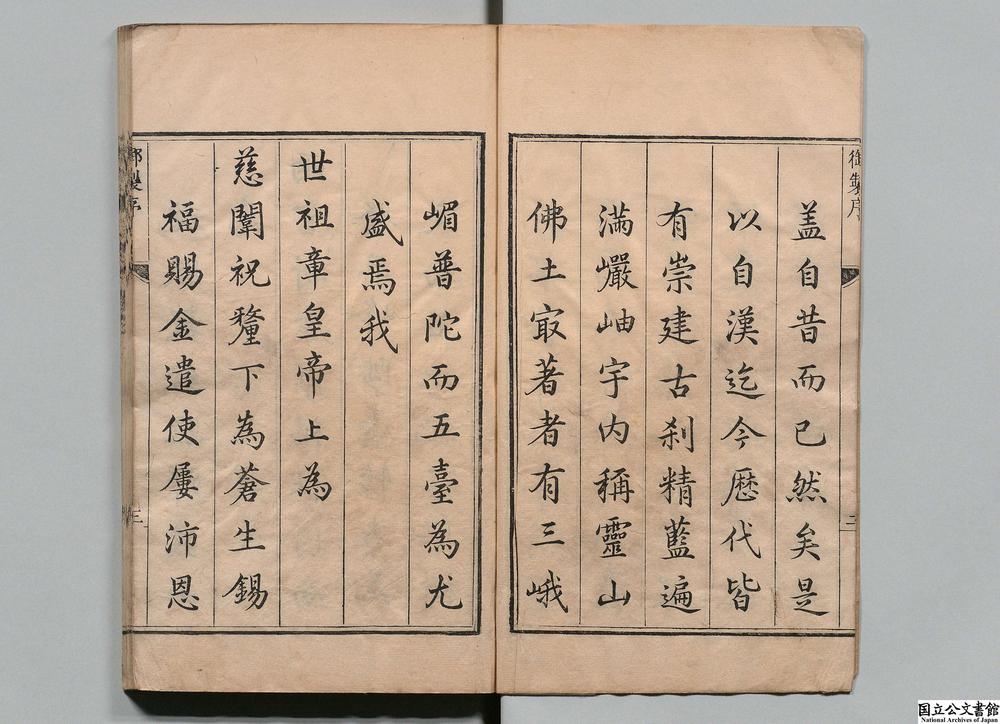 御製序
三
盖自昔而已然矣是
以自漢迄今歴代皆
有崇建古刹精藍遍
滿巖岫宇内稱靈山
佛土㝡著者有三峨
嵋普陀而五臺為尤
盛焉我
世祖章皇帝上為
慈闈祝釐下為蒼生錫
福賜金遣使屢沛恩
御製序
三
国立公文書館
National Archives of Japan